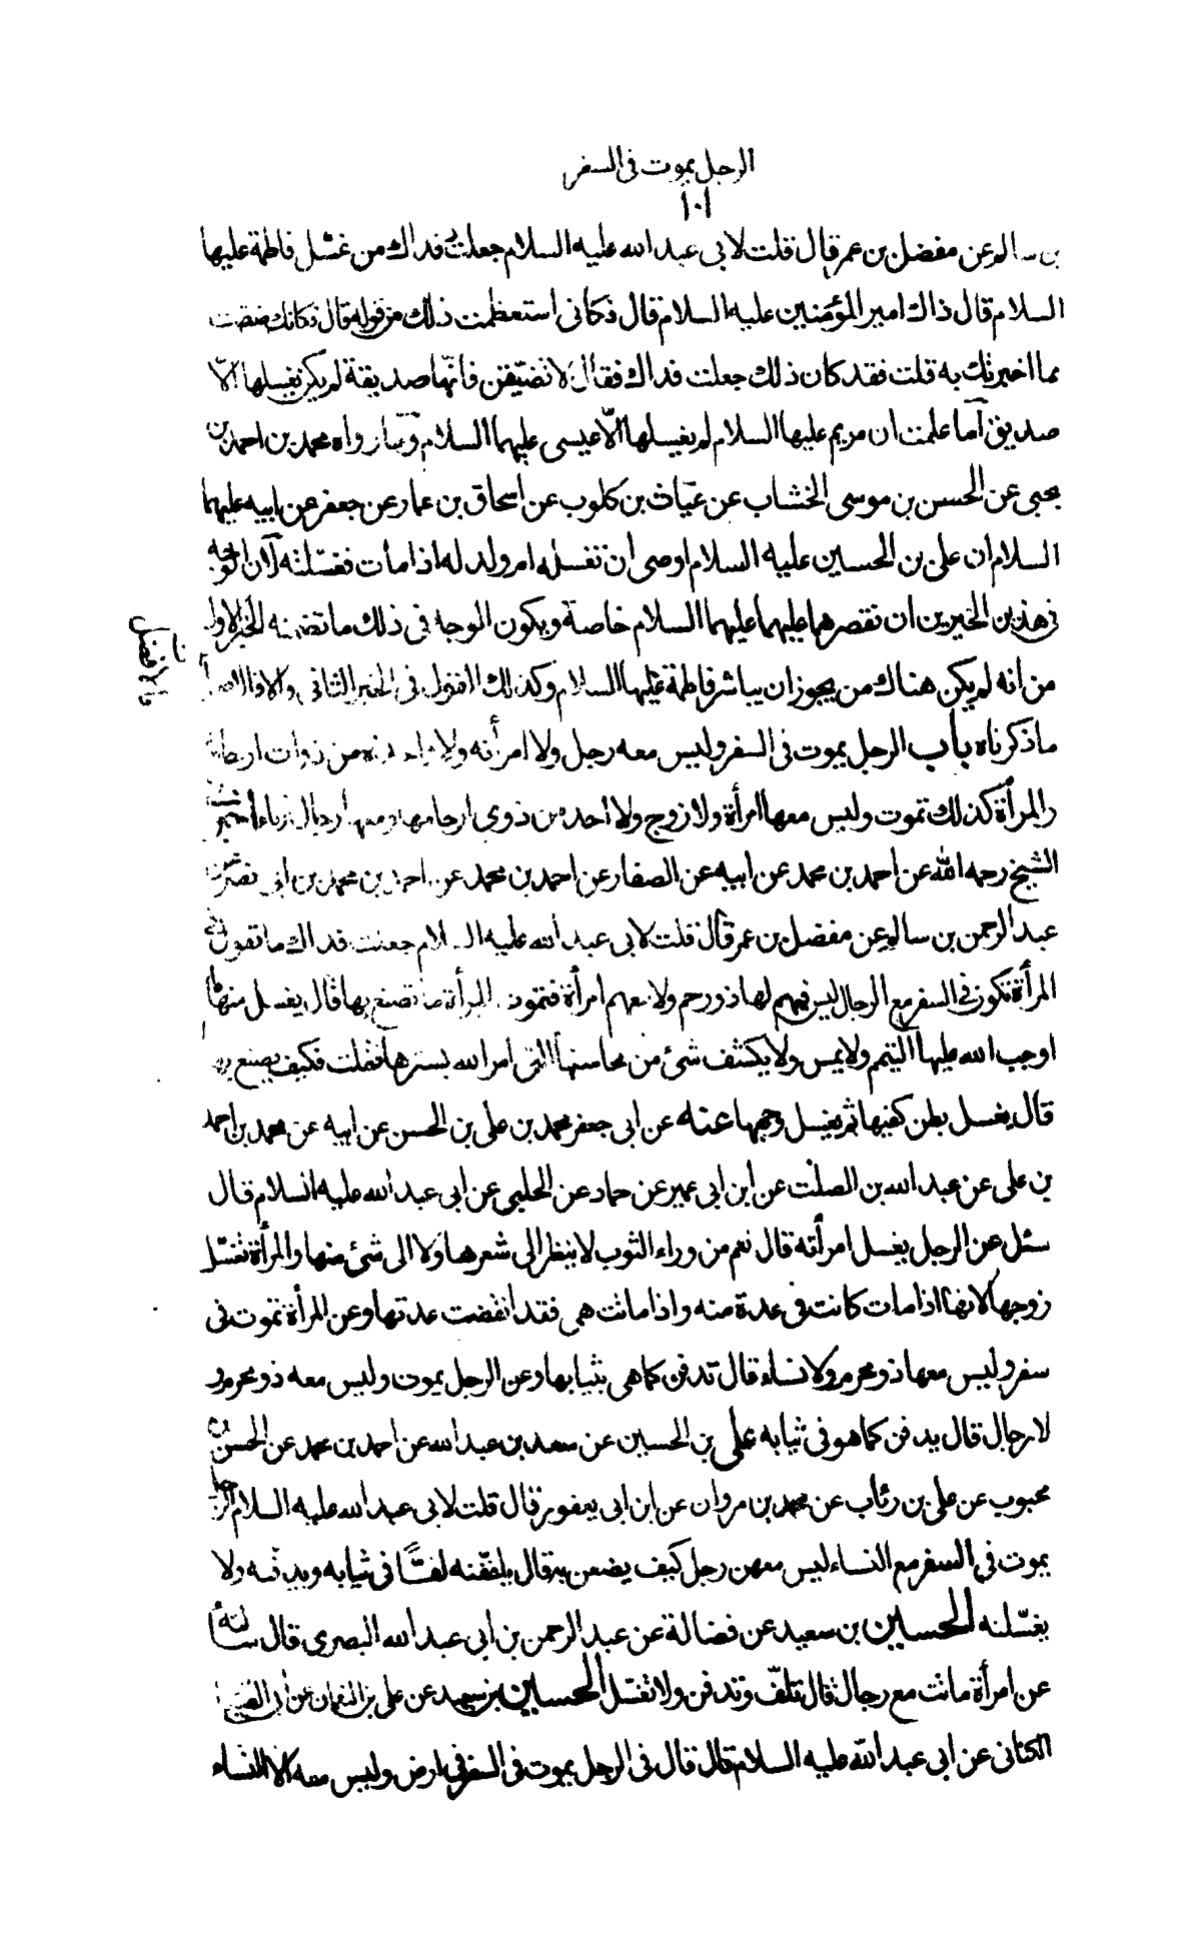 الرجل يموت فى السفر
١٠١
بن سالم عن مفضل بن عمر قال قلت لابى عبد الله عليه السلام جعلت فداك من غسّل فاطمة عليها
السلام قال ذاك امير المؤمنين عليه السلام قال فكانى استعظمت ذلك من قوله قال فكانك ضقت
مما اخبرتك به قلت فقد كان ذلك جعلت فداك فقال لا تضيّقن فانّها صديقة لم يكن يغسلها الّا
صديق اما علمت ان مريم عليها السلام لم يغسلها الّا عيسى عليهما السلام رواه محمد بن احمد بن
يحيى عن الحسن بن موسى الخشاب عن غياث بن كلوب عن اسحاق بن عمار عن جعفر عن ابيه عليهما
السلام ان على بن الحسين عليه السلام اوصى ان تغسله ام ولد له اذا مات فغسّلته لان الوجه
فى هذين الخبرين ان نقصرهما عليهما عليهما السلام خاصة ويكون الوجه فى ذلك ما تضمنه الخبر الاول
من انه لم يكن هناك من يجوز ان يباشر فاطمة عليها السلام وكذلك القول فى الخبر الثانى والا فالاصل
ما ذكرناه باب الرجل يموت فى السفر وليس معه رجل ولا امرأته ولا من ذوات ارحامه
والمرأة كذلك تموت وليس معها امرأة ولا زوج ولا احد من ذوى ارحامها ومعها رجال غرباء
الشيخ رحمه الله عن احمد بن محمد عن ابيه عن الصفار عن احمد بن محمد عن احمد بن محمد بن ابى نصر عن
عبد الرحمن بن سالم عن مفضل بن عمر قال قلت لابى عبد الله عليه السلام جعلت فداك ما تقول فى
المرأة تكون فى السفر مع الرجال ليس فيهم لها ذو رحم ولا معهم امرأة فتموت المرأة ما تصنع بها قال يغسل منها ما
اوجب الله عليها التيمم ولا يمس ولا يكشف شئ من محاسنها التى امر الله بسترها فقلت فكيف يصنع بها
قال يغسل بطن كفيها ثم يغسل وجهها عنه عن ابى جعفر محمد بن على بن الحسن عن ابيه عن محمد بن احمد
بن على عن عبد الله بن الصلت عن ابن ابى عمير عن حماد عن الحلبى عن ابى عبد الله عليه السلام قال
سئل عن الرجل يغسل امرأته قال نعم من وراء الثوب لا ينظر الى شعرها ولا الى شئ منها والمرأة تغسّل
زوجها لانها اذا مات كانت فى عدة منه واذا ماتت هى فقد انقضت عدتها وعن المرأة تموت فى
سفر وليس معها ذو محرم ولا نساء قال تدفن كما هى بثيابها وعن الرجل يموت وليس معه ذو محرم و
لا رجال قال يدفن كما هو فى ثيابه على بن الحسين عن سعد بن عبد الله عن احمد بن محمد عن الحسن بن
محبوب عن على بن رئاب عن محمد بن مروان عن ابن ابى يعفور قال قلت لابى عبد الله عليه السلام الرجل
يموت فى السفر مع النساء ليس معهن رجل كيف يصنعن به قال يلففنه لفًّا فى ثيابه ويدفنه ولا
يغسّلنه الحسين بن سعيد عن فضالة عن عبد الرحمن بن ابى عبد الله البصرى قال سألته
عن امرأة ماتت مع رجال قال تلفّ وتدفن ولا تغسّل الحسين بن سعيد عن على بن النعمان عن ابى الصباح
الكنانى عن ابى عبد الله عليه السلام قال قال فى الرجل يموت فى السفر فى ارض وليس معه الا النساء